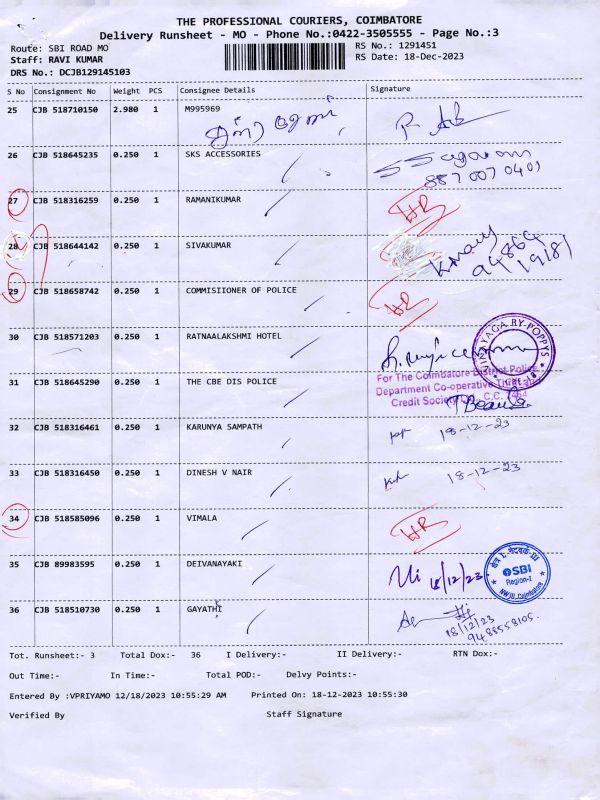 THE PROFESSIONAL COURIERS, COIMBATORE
Delivery Runsheet - MO - Phone No.:0422-3505555 - Page No.:3
Route: SBI ROAD MO
RS No.: 1291451
Staff: RAVI KUMAR
RS Date: 18-Dec-2023
DRS No.: DCJB129145103
S No Consignment No Weight PCS Consignee Details Signature
25 CJB 518710150 2.980 1 M995969
26 CJB 518645235 0.250 1 SKS ACCESSORIES
8870070401
27 CJB 518316259 0.250 1 RAMANIKUMAR HR
28 CJB 518644142 0.250 1 SIVAKUMAR
29 CJB 518658742 0.250 1 COMMISIIONER OF POLICE HR
30 CJB 518571203 0.250 1 RATNAALAKSHMI HOTEL
VINAYAGA RY-POPPYS
31 CJB 518645290 0.250 1 THE CBE DIS POLICE
For The Coimbatore District Police
Department Co-operative Thrift and
Credit Society
32 CJB 518316461 0.250 1 KARUNYA SAMPATH 18-12-23
33 CJB 518316450 0.250 1 DINESH V NAIR 18-12-23
34 CJB 518585096 0.250 1 VIMALA HR
35 CJB 89983595 0.250 1 DEIVANAYAKI 18/12/23
SBI
Region-I
36 CJB 518510730 0.250 1 GAYATHI
18/12/23
9488558105.
Tot. Runsheet:- 3 Total Dox:- 36 I Delivery:- II Delivery:- RTN Dox:-
Out Time:- In Time:- Total POD:- Delvy Points:-
Entered By :VPRIYAMO 12/18/2023 10:55:29 AM Printed On: 18-12-2023 10:55:30
Verified By Staff Signature